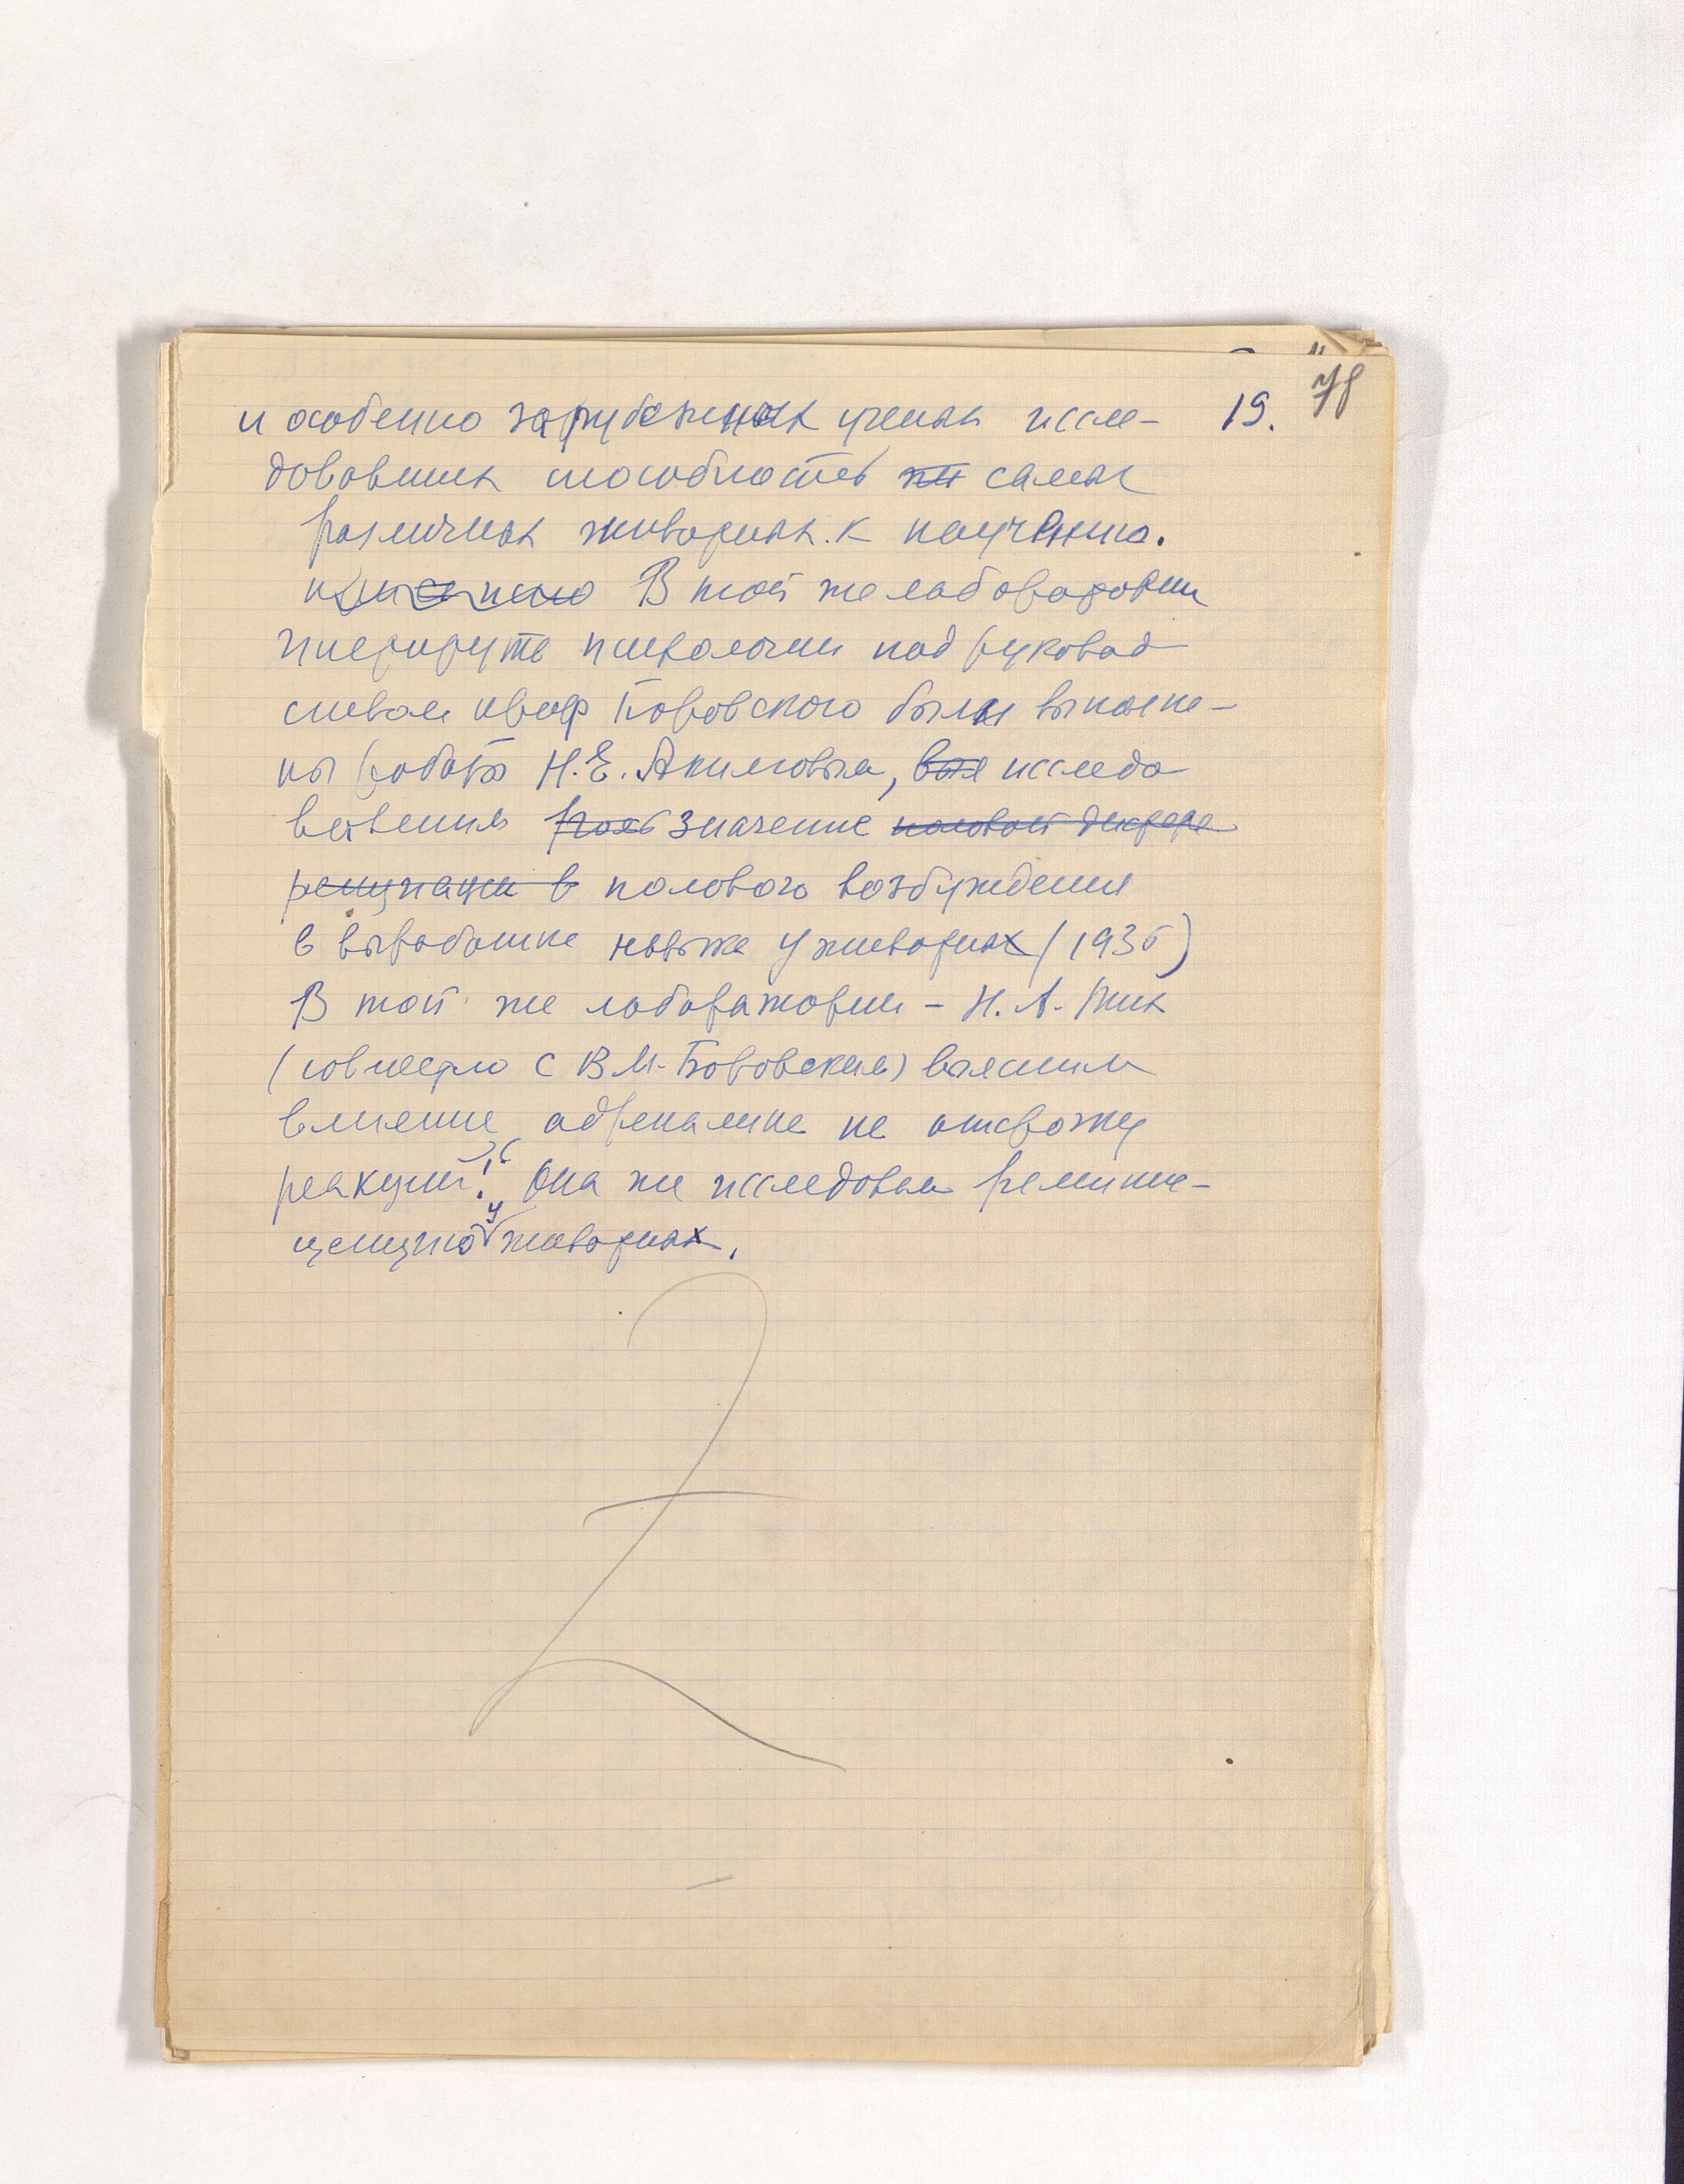 19. 78
и особенно зарубежных ученых иссле-
довавших способность самых
различных животных к научению.
В той же лаборатории
Института психологии под руковод
ством проф Боровского были выполне-
ны работы Н.Е. Акимовым, исследо
вавшим роль значение половой дифере
ренциации в полового возбуждения
в выработке навыка у животных (1936)
В той же лаборатории – Н. А. Тих
(совместно с В.М. Боровским) выясним
влияние адреналина на отсрочку
реакций. Она же исследовала реминис-
ценцию у животных.